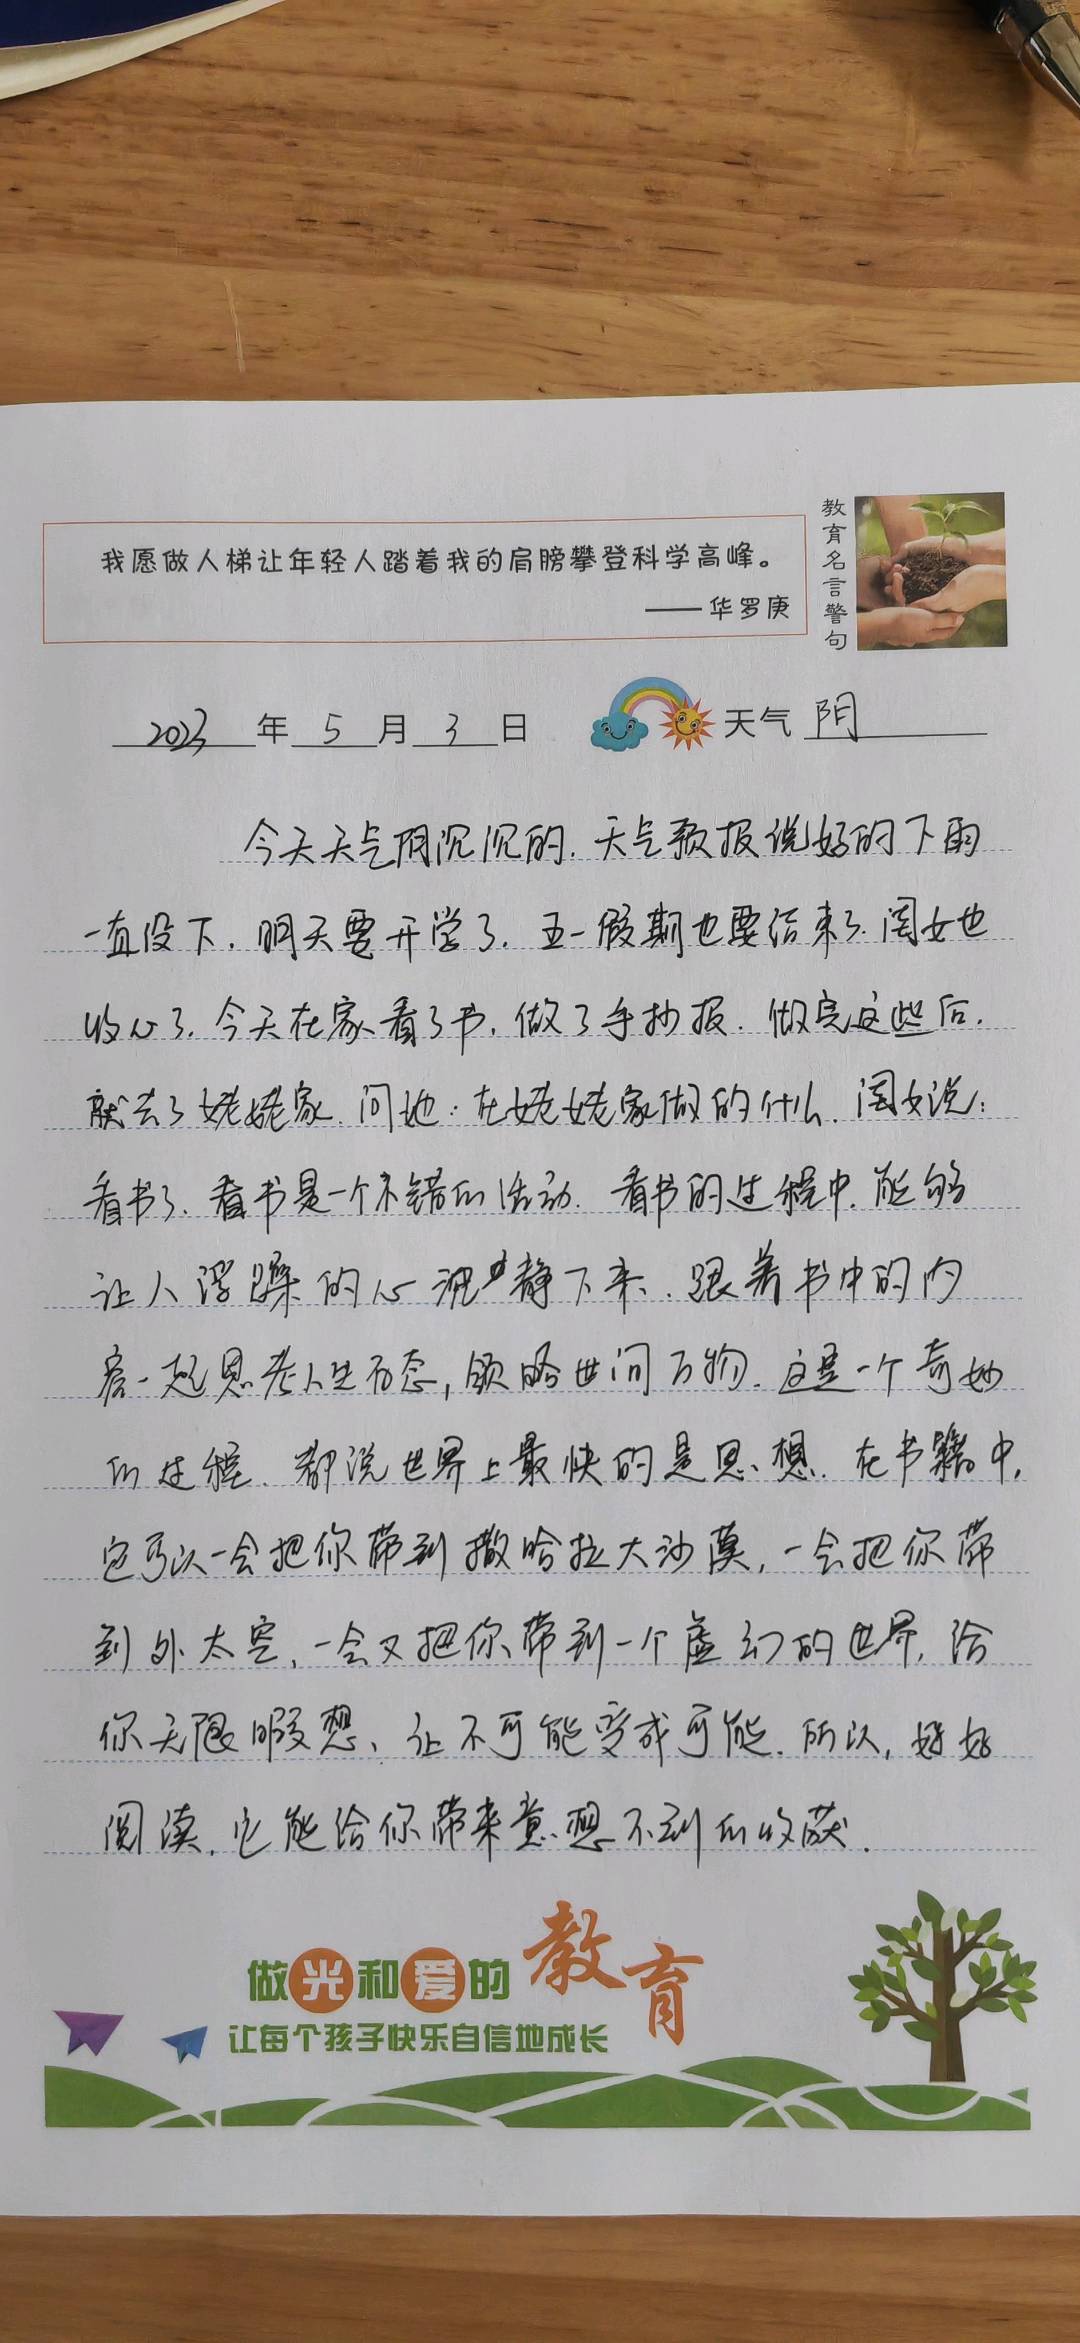 我愿做人梯让年轻人踏着我的肩膀攀登科学高峰。
——华罗庚
教育名言警句
2023年5月3日 天气 阴
今天天气阴沉沉的.天气预报说好的下雨
一直没下.明天要开学了.五一假期也要结束了.闺女也
收心了.今天在家看了书,做了手抄报.做完这些后,
就去了姥姥家.问她:在姥姥家做的什么.闺女说:
看书了.看书是一个不错的活动.看书的过程中.能够
让人浮躁的心静下来.跟着书中的内
容一起思考人生百态,领略世间万物.这是一个奇妙
的过程.都说世界上最快的是思想.在书籍中,
它可以一会把你带到撒哈拉大沙漠,一会把你带
到外太空,一会又把你带到一个虚幻的世界,给
你无限暇想、让不可能变成可能.所以,好好
阅读,它能给你带来意想不到的收获.
做光和爱的教育
让每个孩子快乐自信地成长